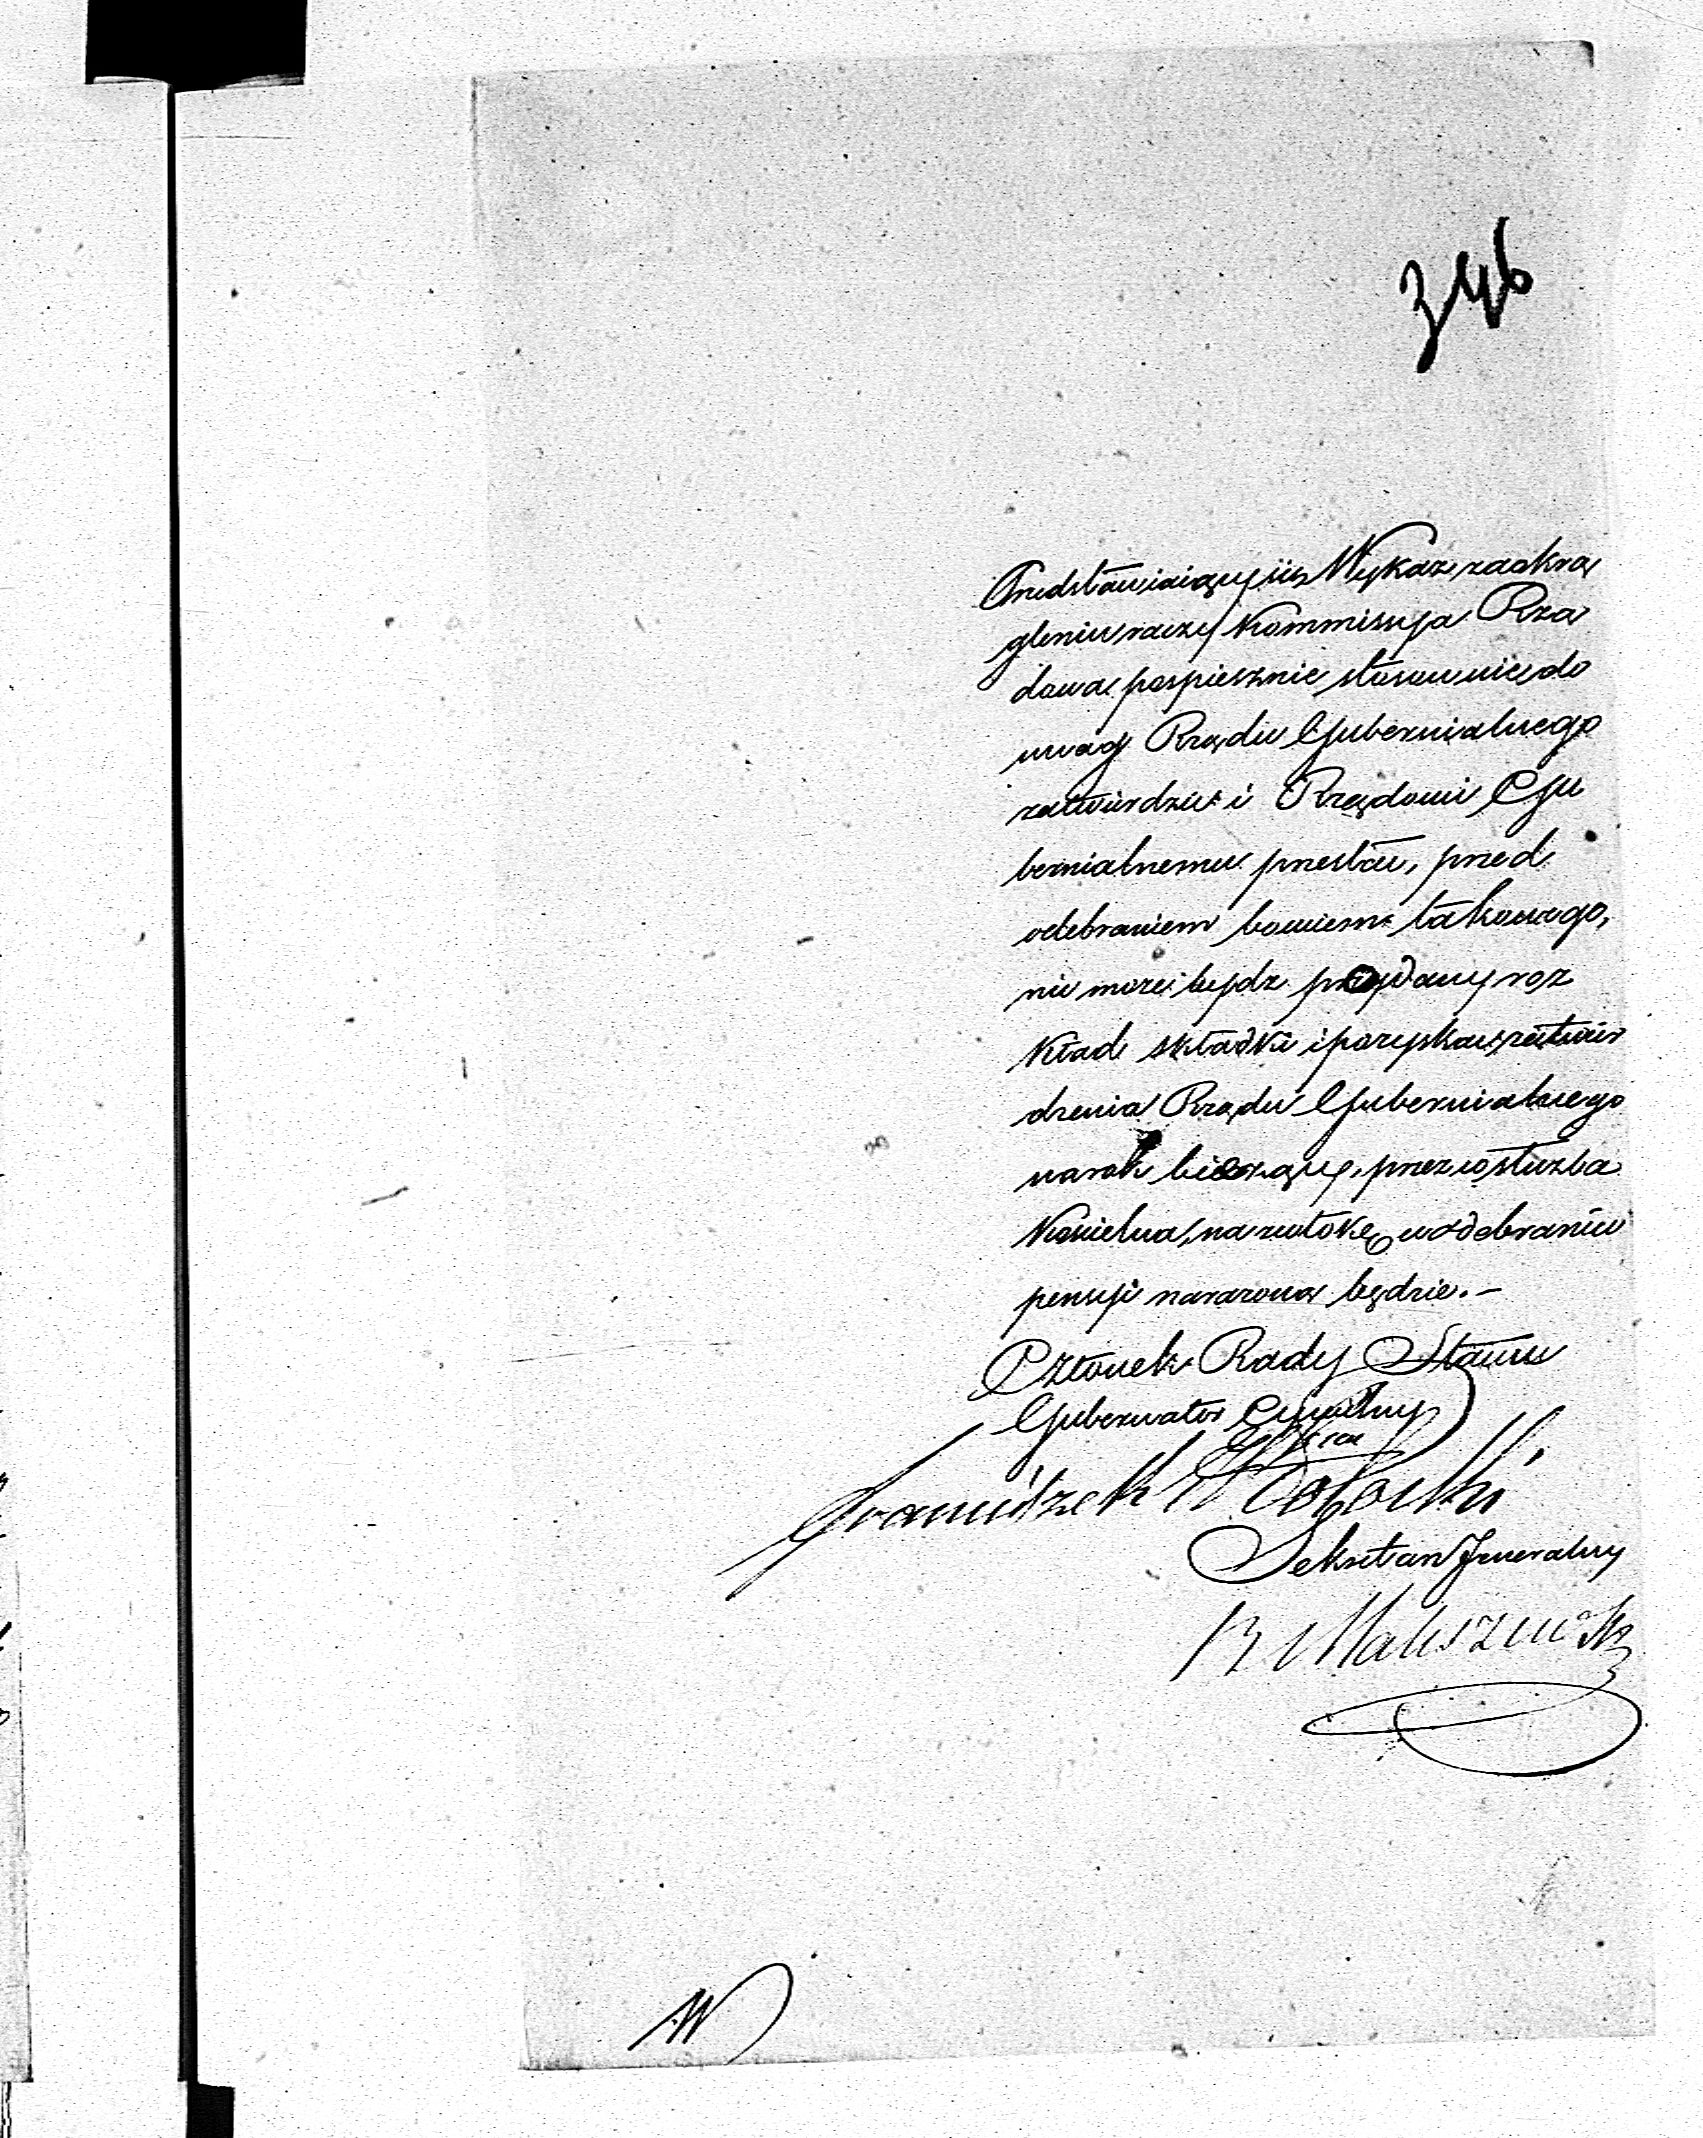 346
Przedstawiaiący się Wykaz zaokrą
gleniu raczy Kommissya Rzą
dowa pospiesznie stosownie do
uwag Rządu Gubernialnego
zatwierdzić i Rządowi Gu
bernialnemu przesłać, przed
odebraniem bowiem takowego,
nie może bydz przydany roz
kład składki i pozyskać zatwier
dzenia Rządu Gubernialnego
na rok bieżący, przez co służba
Kościelna, na zwłokę w odebraniu
pensyi narażoną będzie.—
Członek Rady Stanu
Gubernator Cywilny
Franciszek
Sekretarz Jeneralny